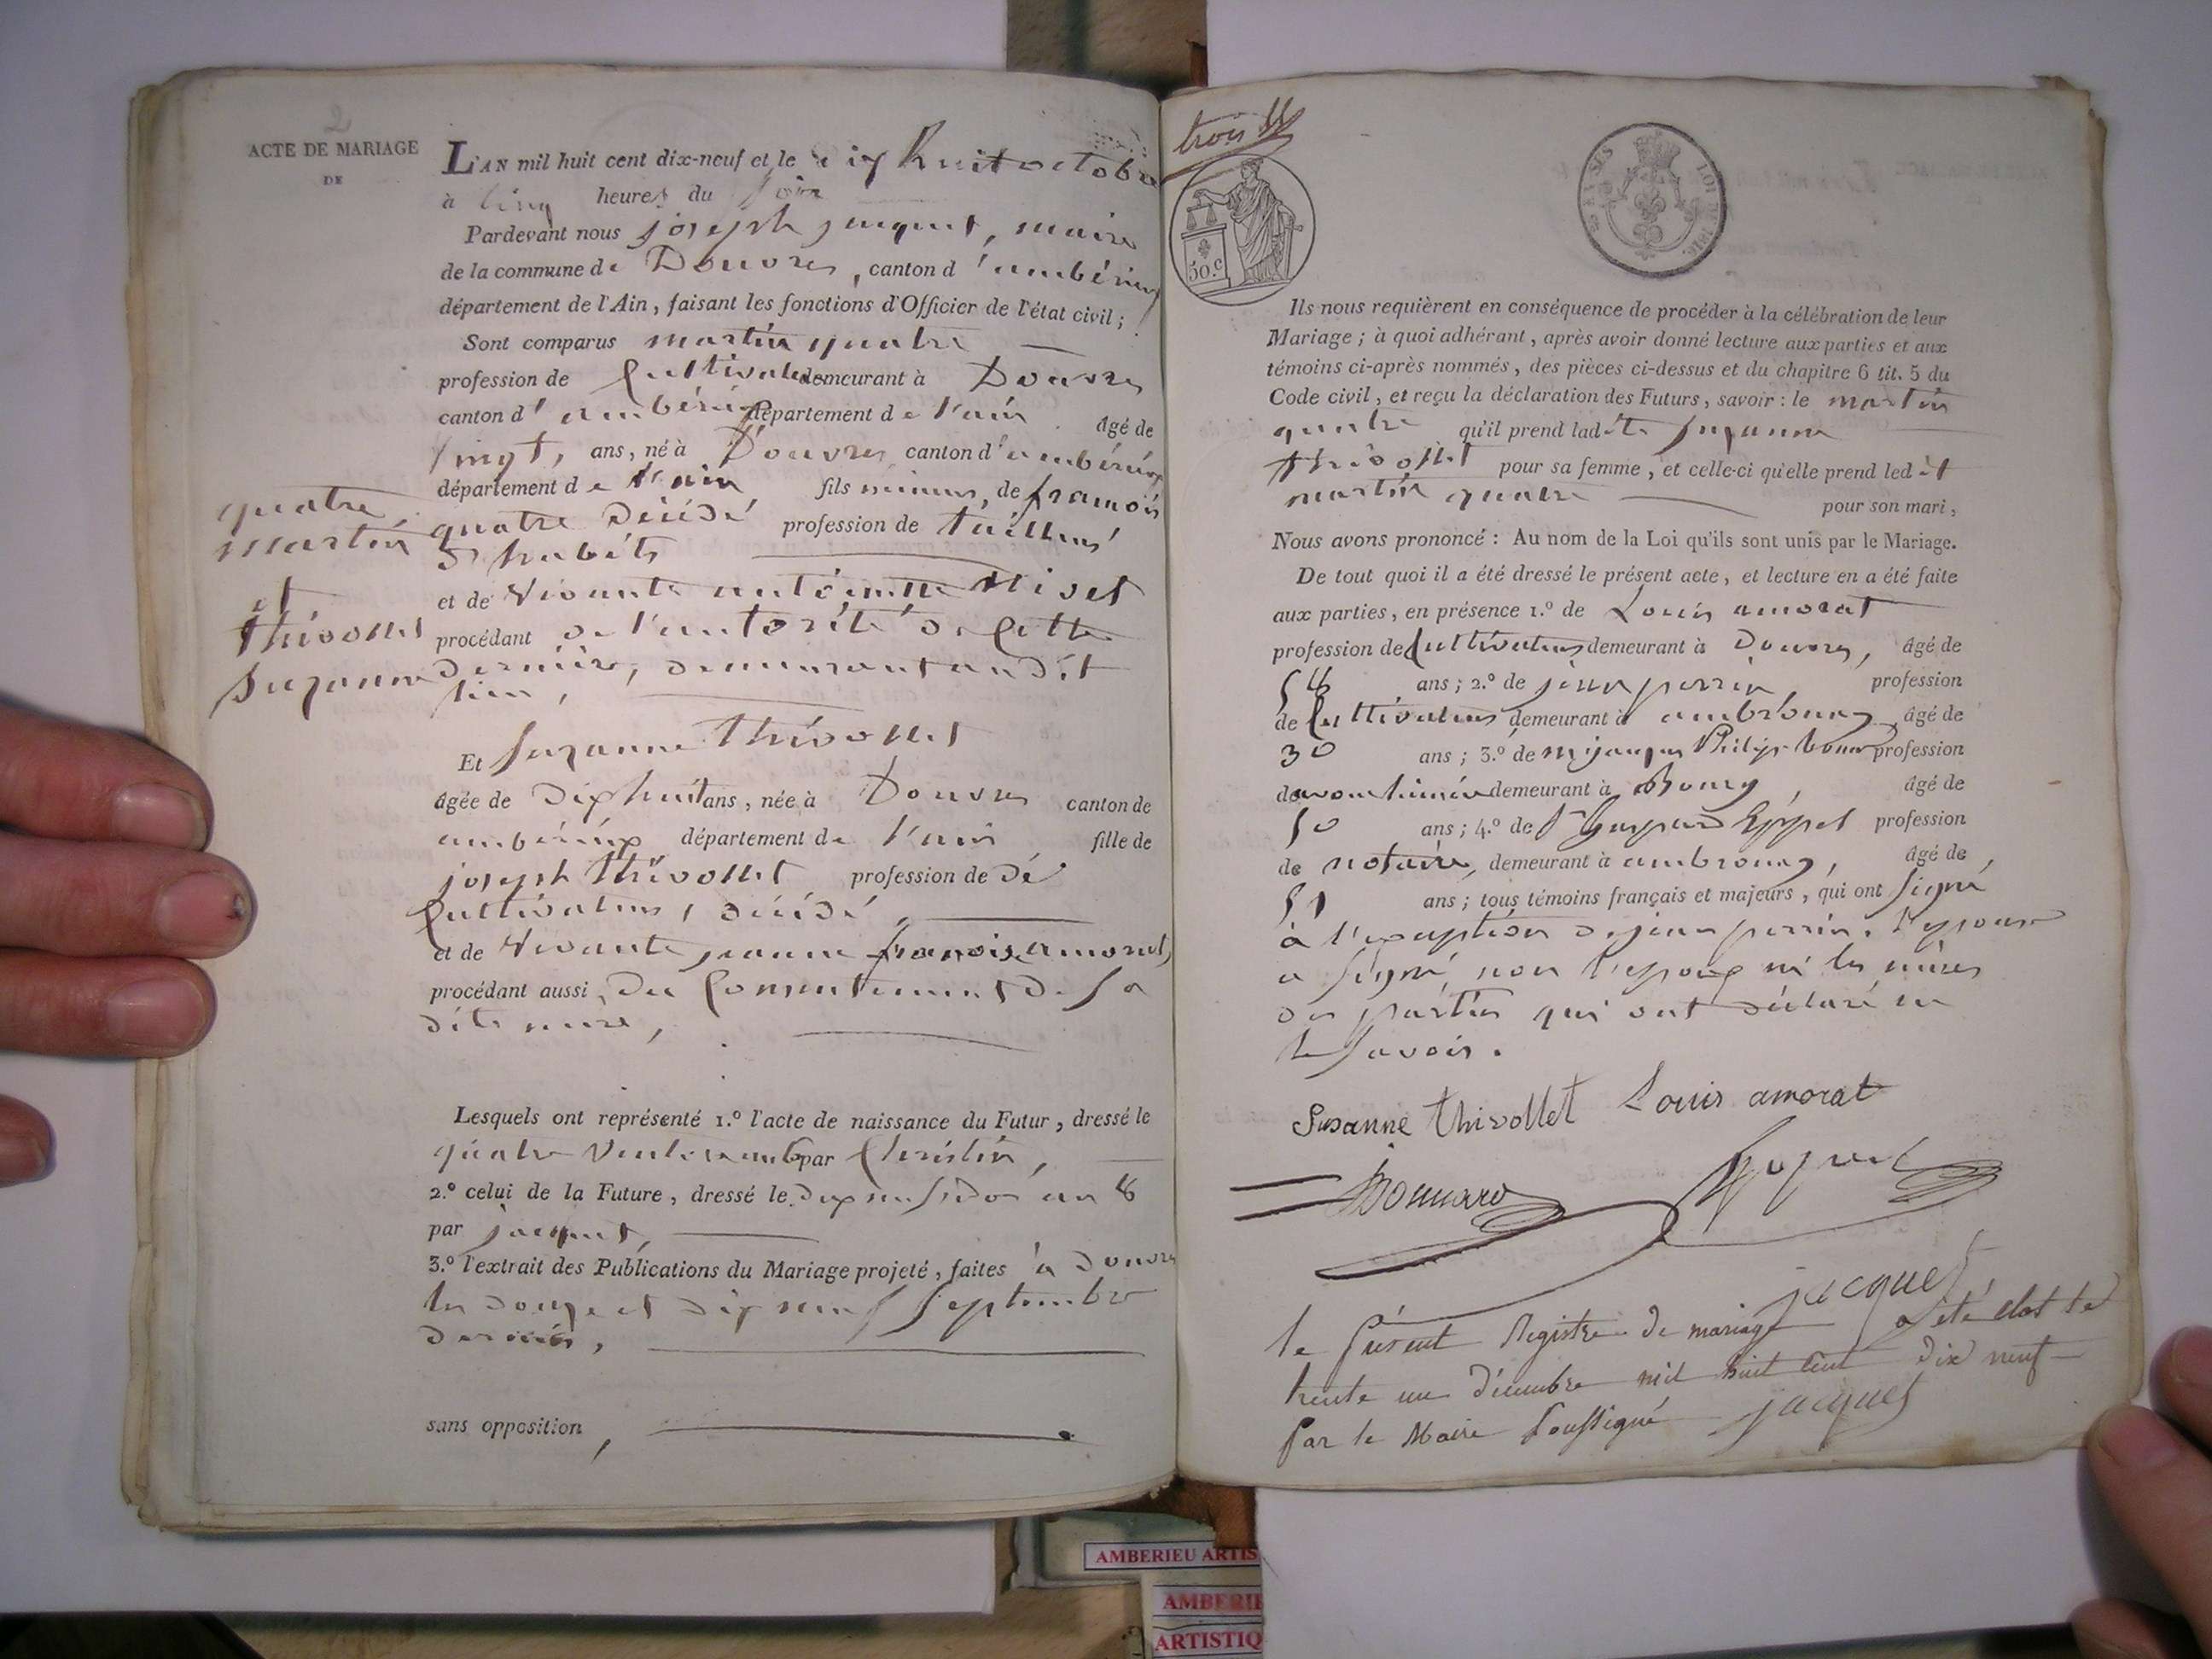 2
ACTE DE MARIAGE
DE
quatre
martin
et
thivollet
Suzanne
L'AN mil huit cent dix-neuf et le dix huit octobre
à cinq heures du soir
Pardevant nous joseph jacquet, maire
de la commune de Douvres, canton d'ambérieux
département de l'Ain, faisant les fonctions d'Officier de l'état civil;
Sont comparus martin quatre
profession de Cultivateur demeurant à Douvres
canton d'ambérieux département de l'ain âgé de
vingt, ans, né à Douvres canton d'ambérieux
département de l'ain fils mineur, de francois
quatre décédé profession de tailleur
d'habits
et de vivante antoinette Nivet
procédant de l'autorité de cette
dernière, demeurant au dit
lieu,
Et Suzanne thivollet
âgée de dix huit ans, née à Douvres canton de
ambérieux département de l'ain fille de
joseph thivollet profession de dé
Cultivateur, décédé,
et de vivante jeanne francoise amorat,
procédant aussi, du consentement de sa
dite mere,
Lesquels ont représenté 1.º l'acte de naissance du Futur, dressé le
quatre par Christin,
2.º celui de la Future, dressé le an 8
par jacquet,
3.º l'extrait des Publications du Mariage projeté, faites à Douvres
les douze et dix neuf Septembre
dernier,
sans opposition,
trois
50.C
LOI DE 1816.
Ils nous requièrent en conséquence de procéder à la célébration de leur
Mariage; à quoi adhérant, après avoir donné lecture aux parties et aux
témoins ci-après nommés, des pièces ci-dessus et du chapitre 6 tit. 5 du
Code civil, et reçu la déclaration des Futurs, savoir: le martin
quatre qu'il prend ladite Suzanne
thivollet pour sa femme, et celle-ci qu'elle prend ledit
martin quatre pour son mari,
Nous avons prononcé: Au nom de la Loi qu'ils sont unis par le Mariage.
De tout quoi il a été dressé le présent acte, et lecture en a été faite
aux parties, en présence 1.º de Louis amorat
profession de Cultivateur demeurant à Douvres, âgé de
58 ans; 2.º de jean perrin, profession
de Cultivateur demeurant à ambronay, âgé de
30 ans; 3.º de m jacques Philippe bonnard profession
de demeurant à Bourg, âgé de
50 ans; 4.º de Sr gaspard profession
de notaire, demeurant à ambronay, âgé de
51 ans; tous témoins français et majeurs, qui ont signé
à l'exception de jean perrin. l'epouse
a signé, non l'epoux ni les mères
des parties qui ont déclaré ne
le savoir.
Susanne thivollet Louis amorat
Bonnard
jacquet
le présent Registre de mariage a été clot le
trente un décembre mil huit cent dix neuf
par le Maire soussigné jacquet
AMBERIEU ARTIS
AMBERIE
ARTISTIQ